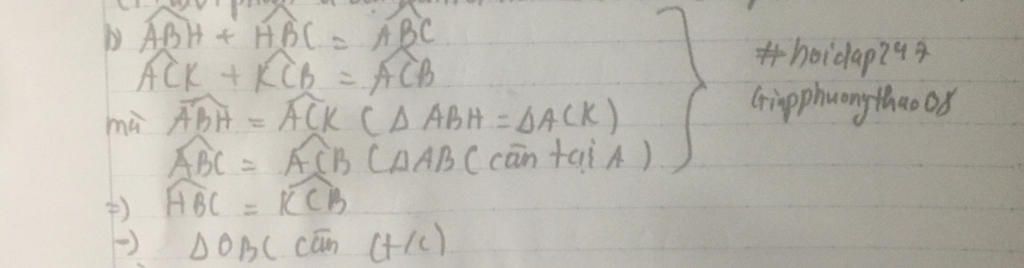 b) $\widehat{ABH} + \widehat{HBC} = \widehat{ABC}$
$\widehat{ACK} + \widehat{KCB} = \widehat{ACB}$
mà $\widehat{ABH} = \widehat{ACK}$ (Δ ABH = ΔACK)
$\widehat{ABC} = \widehat{ACB}$ (ΔABC cân tại A)
=> $\widehat{HBC} = \widehat{KCB}$
=> ΔOBC cân (t/c)
#hoidap247
Giapphuongthao08